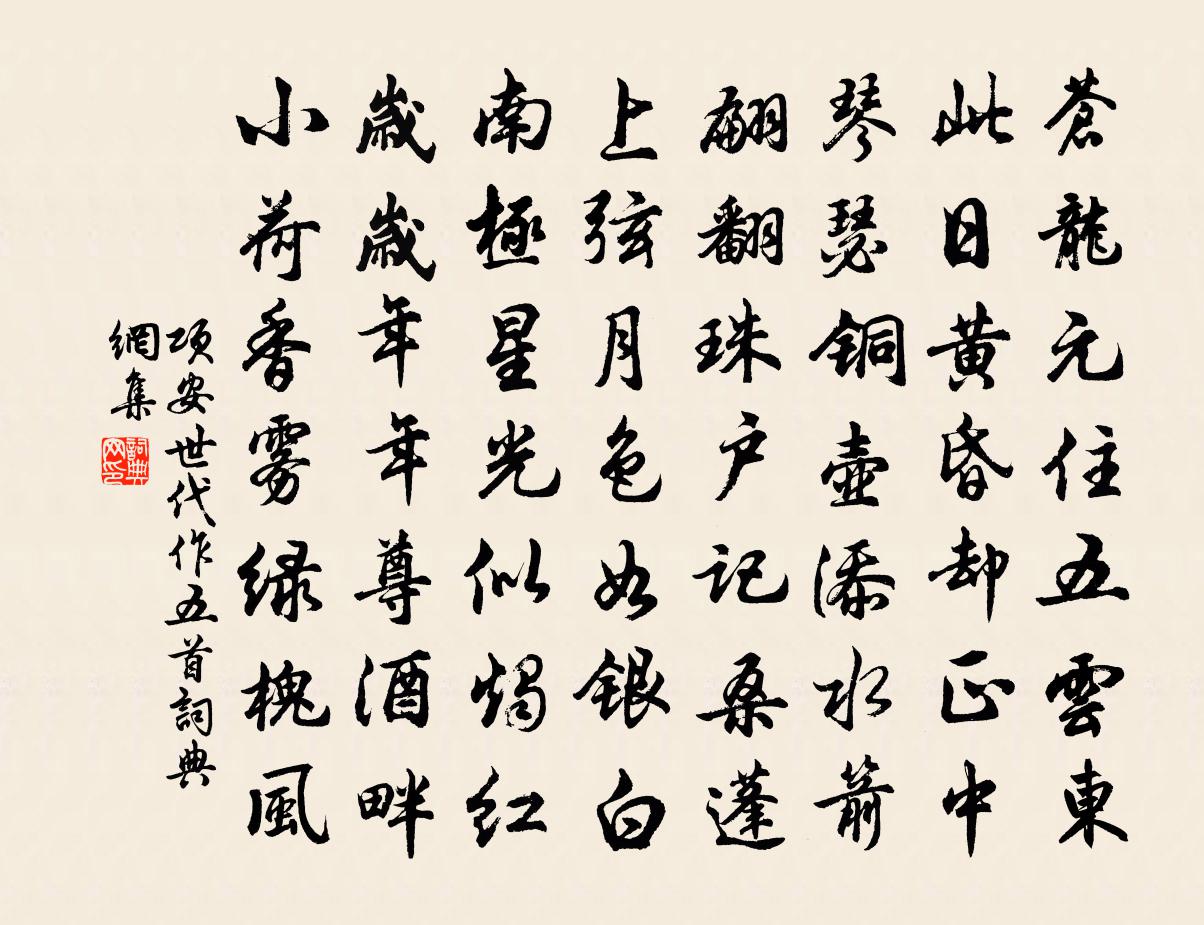 蒼龍元住五雲東
此日黃昏却正中
琴瑟銅壺添水箭
翩翻珠户記桑蓬
上弦月色如銀白
南極星光似燭紅
歲歲年年尊酒畔
小荷香霧緑槐風
項安世代作五首詞典
網集
詞典網印